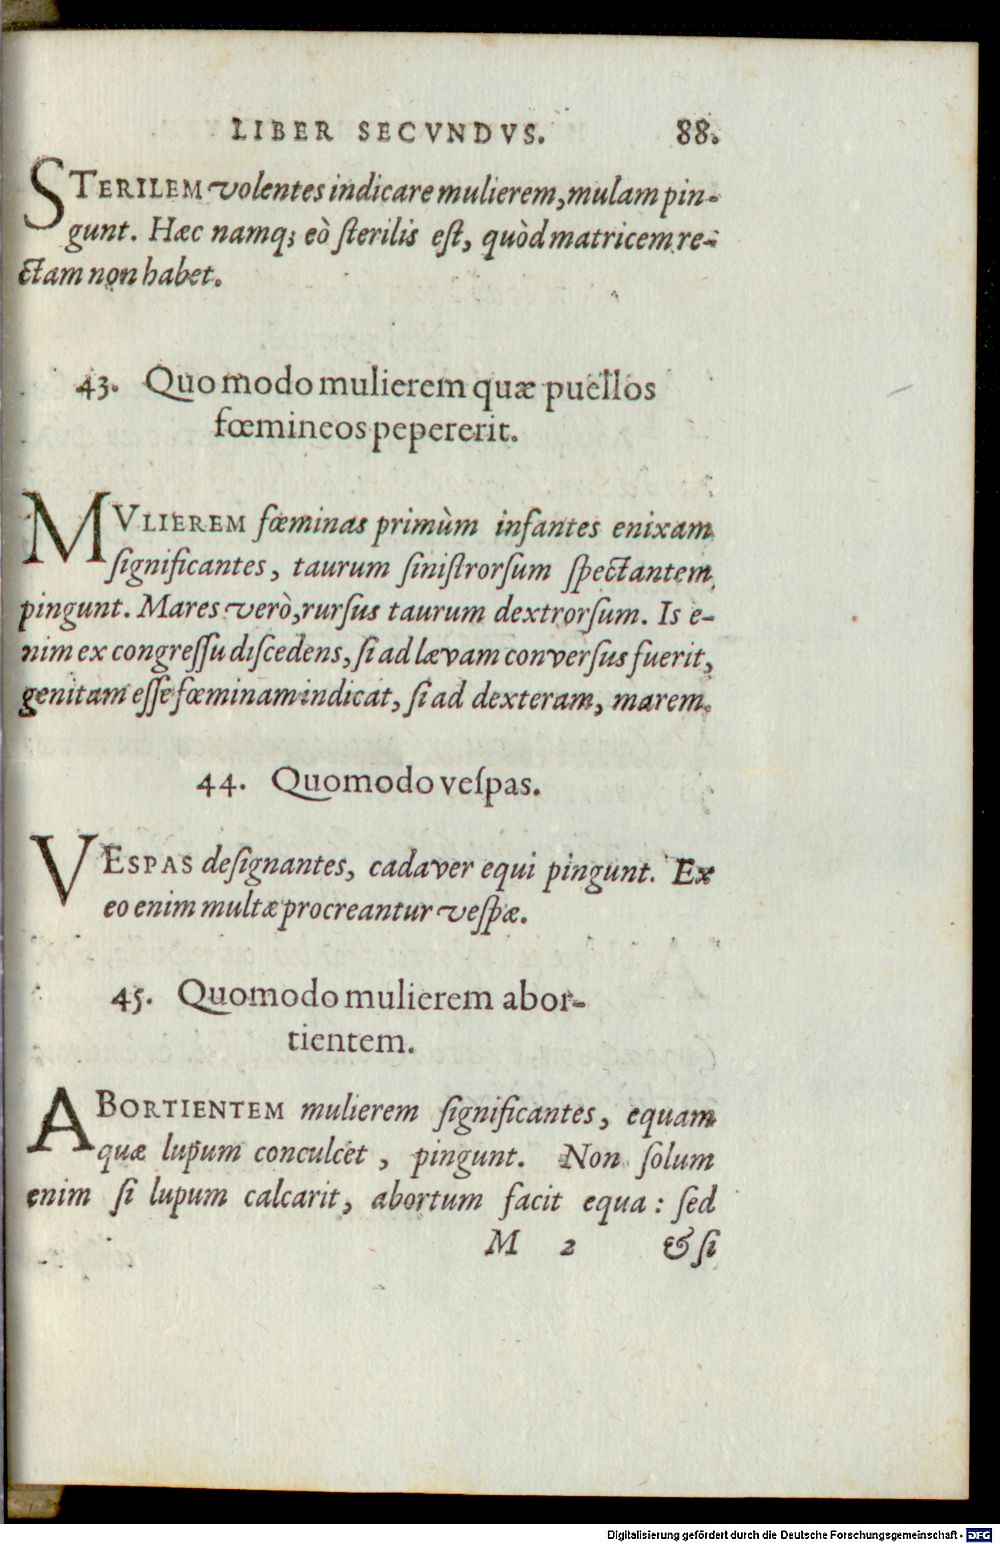 LIBER SECVNDVS. 88.
STERILEM volentes indicare mulierem, mulam pin-
gunt. Hæc namq; eò ſterilis eſt, quòd matricem re-
ctam non habet.
43. Quomodo mulierem quæ puellos
fœmineos pepererit.
MVLIEREM fœminas primùm infantes enixam
ſignificantes, taurum ſiniſtrorſum ſpectantem
pingunt. Mares verò, rurſus taurum dextrorſum. Is e-
nim ex congreſſu diſcedens, ſi ad lævam converſus fuerit,
genitam eſſe fœminam indicat, ſi ad dexteram, marem.
44. Quomodo veſpas.
VESPAS deſignantes, cadaver equi pingunt. Ex
eo enim multæ procreantur veſpæ.
45. Quomodo mulierem abor-
tientem.
ABORTIENTEM mulierem ſignificantes, equam
quæ lupum conculcet, pingunt. Non ſolum
enim ſi lupum calcarit, abortum facit equa: ſed
M 2 & ſi
Digitalisierung gefördert durch die Deutsche Forschungsgemeinschaft - DFG